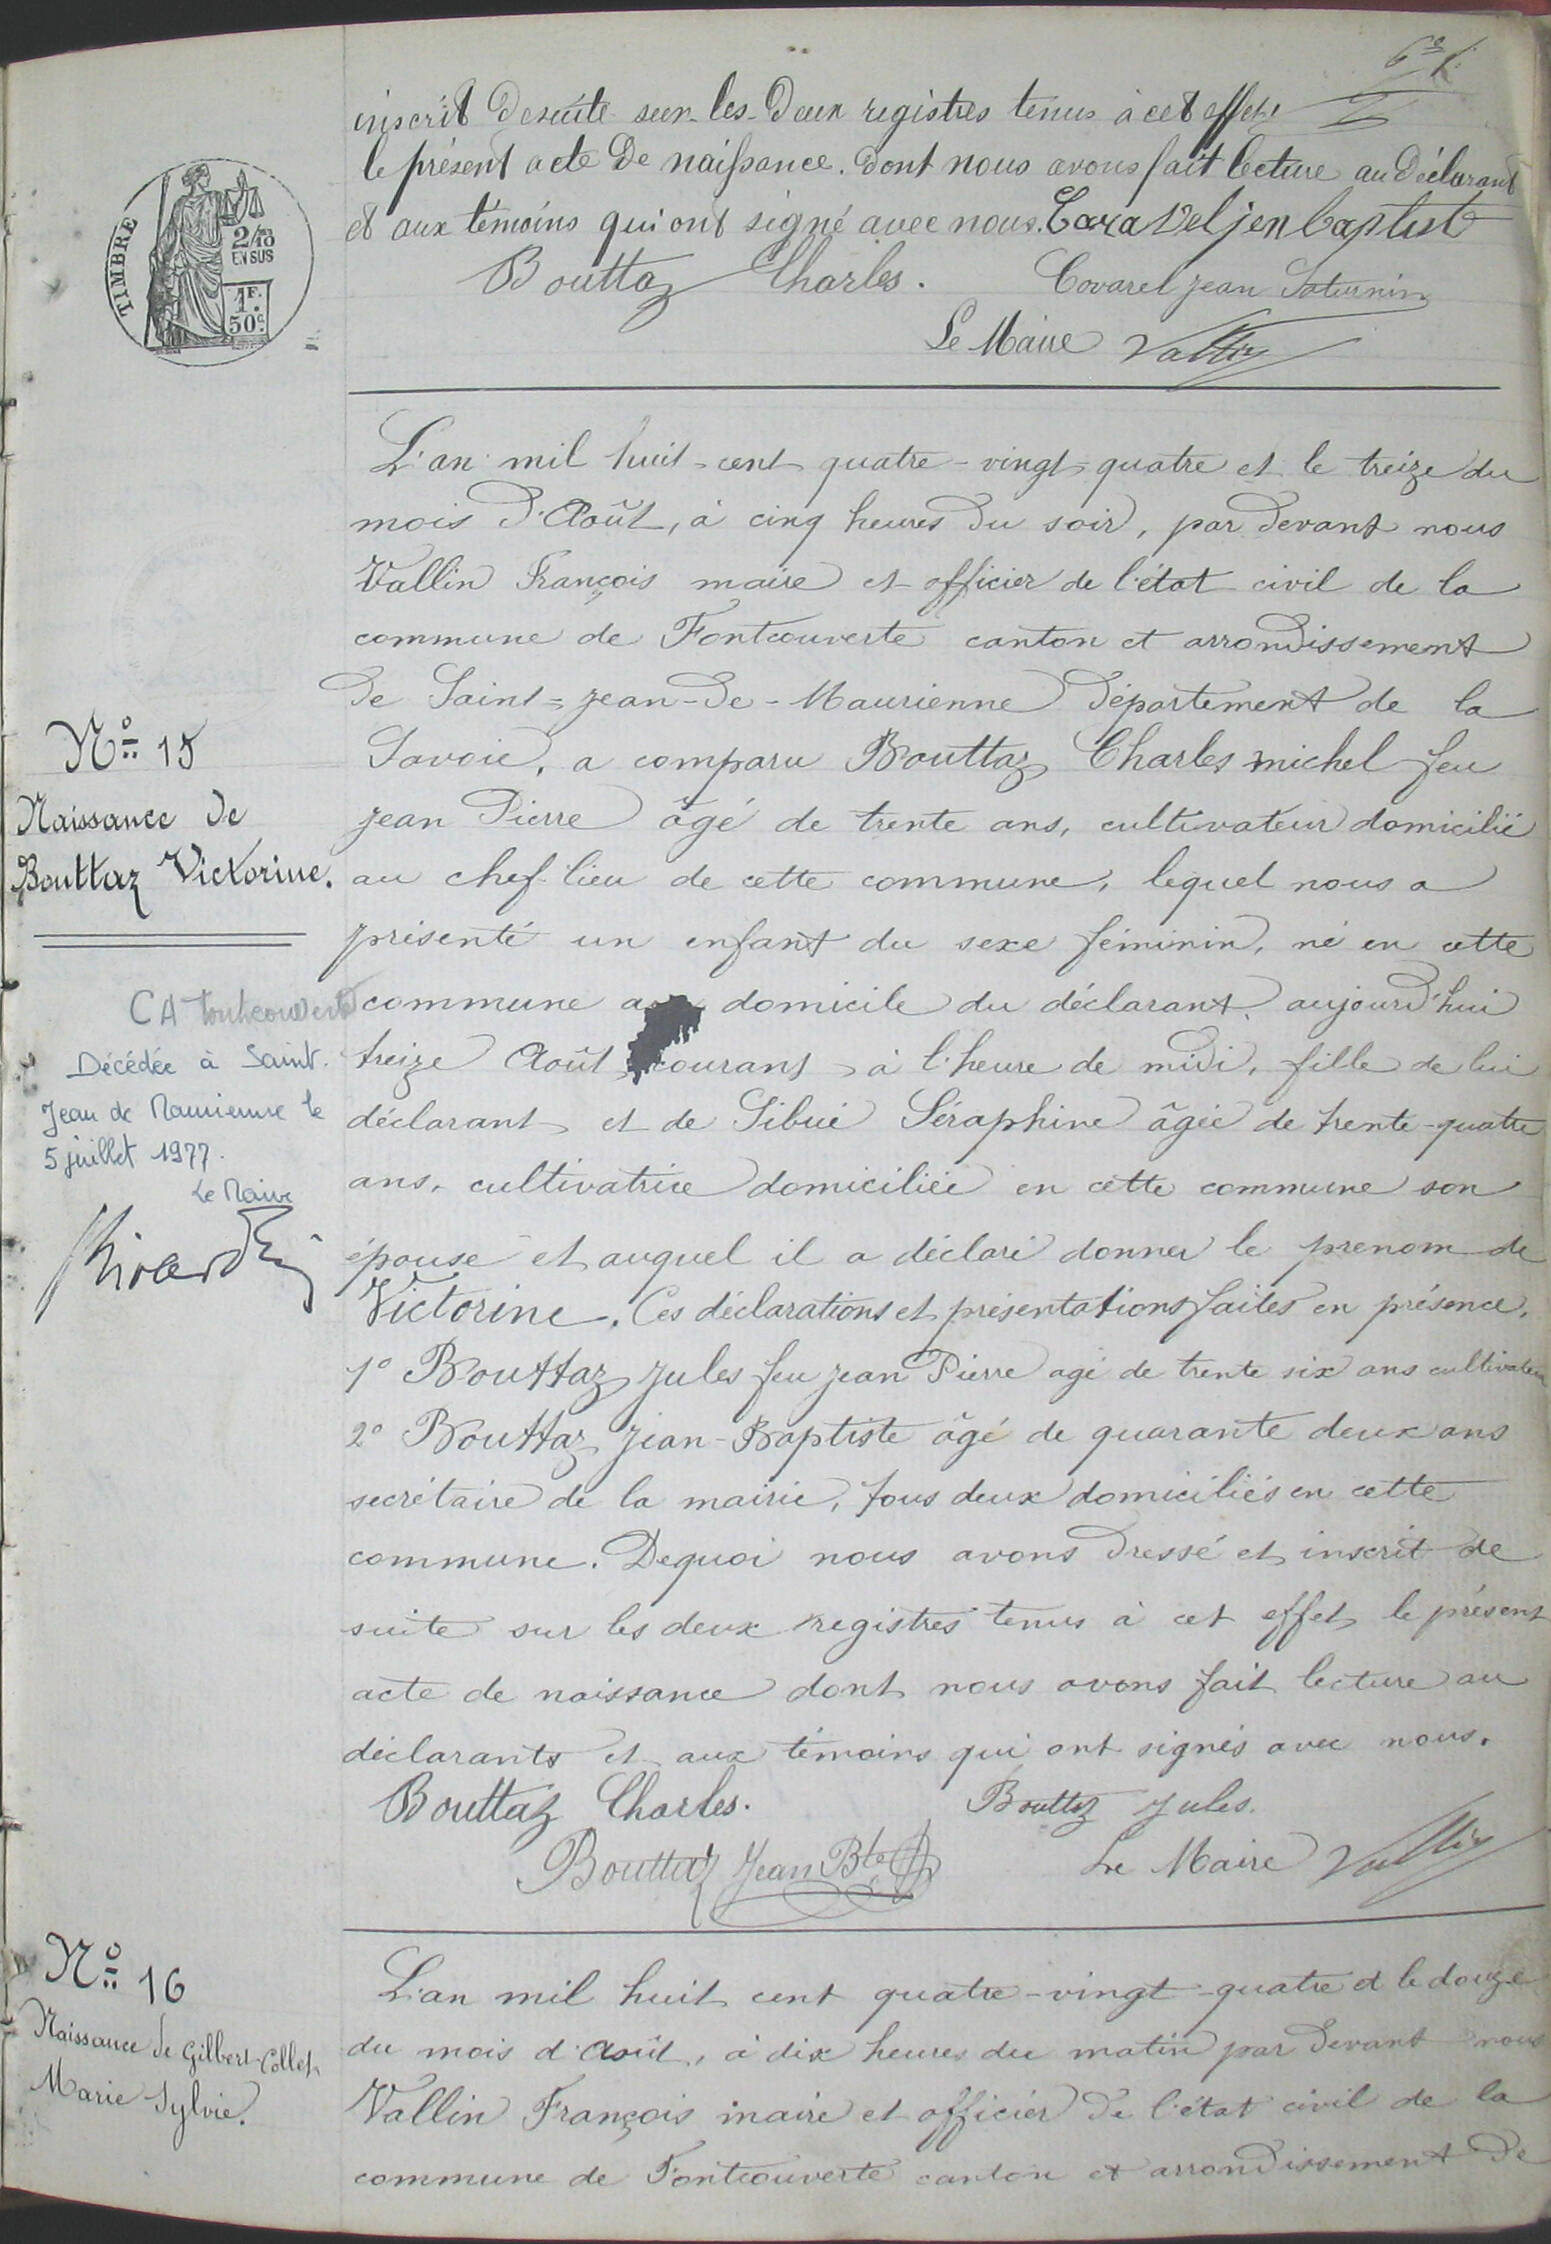 inscrit desuite sur les Deux registres tenus à cet effet
le présent acte De naissance. dont nous avons fait lecture au déclarant
et aux témoins qui ont signé avec nous. Caravel jen baptist
Bouttaz Charles. Covarel jean Saturnin
Le Maire Vallin
TIMBRE
2/10
EN SUS
1F.
50c.
Nº 15
Naissance de
Bouttaz Victorine.
L'an mil huit cent quatre-vingt-quatre et le treize du
mois d'Août, à cinq heures du soir, par devant nous
Vallin François maire et officier de l'état civil de la
commune de Fontcouverte canton et arrondissement
de Saint=jean-de-Maurienne département de la
Savoie, a comparu Bouttaz Charles michel feu
jean Pierre âgé de trente ans, cultivateur domicilié
au chef-lieu de cette commune, lequel nous a
présenté un enfant du sexe féminin, né en cette
commune domicile du déclarant, aujourd'hui
treize Août courant à l'heure de midi, fille de lui
déclarant et de Sibué Séraphine âgée de trente-quatre
ans, cultivatrice domiciliée en cette commune son
épouse et auquel il a déclaré donner le prenom de
Victorine. Ces déclarations et présentations faites en présence,
1º Bouttaz jules feu jean Pierre agé de trente six ans cultivateur
2º Bouttaz jean-Baptiste âgé de quarante deux ans
secrétaire de la mairie, tous deux domiciliés en cette
commune. Dequoi nous avons dressé et inscrit de
suite sur les deux registres tenus à cet effet le présent
acte de naissance dont nous avons fait lecture au
déclarants et aux témoins qui ont signés avec nous.
Bouttaz Charles. Bouttaz jules.
Bouttaz Jean Bte Le Maire Vallin
CA
Décédée à Saint.
Jean de Maurienne le
5 juillet 1977.
Le Maire
Nº 16
Naissance de Gilbert-Collet
Marie Sylvie.
L'an mil huit cent quatre-vingt-quatre et le douze
du mois d'Août, à dix heures du matin par devant nous
Vallin François maire et officier de l'état civil de la
commune de Fontcouverte canton et arrondissement de